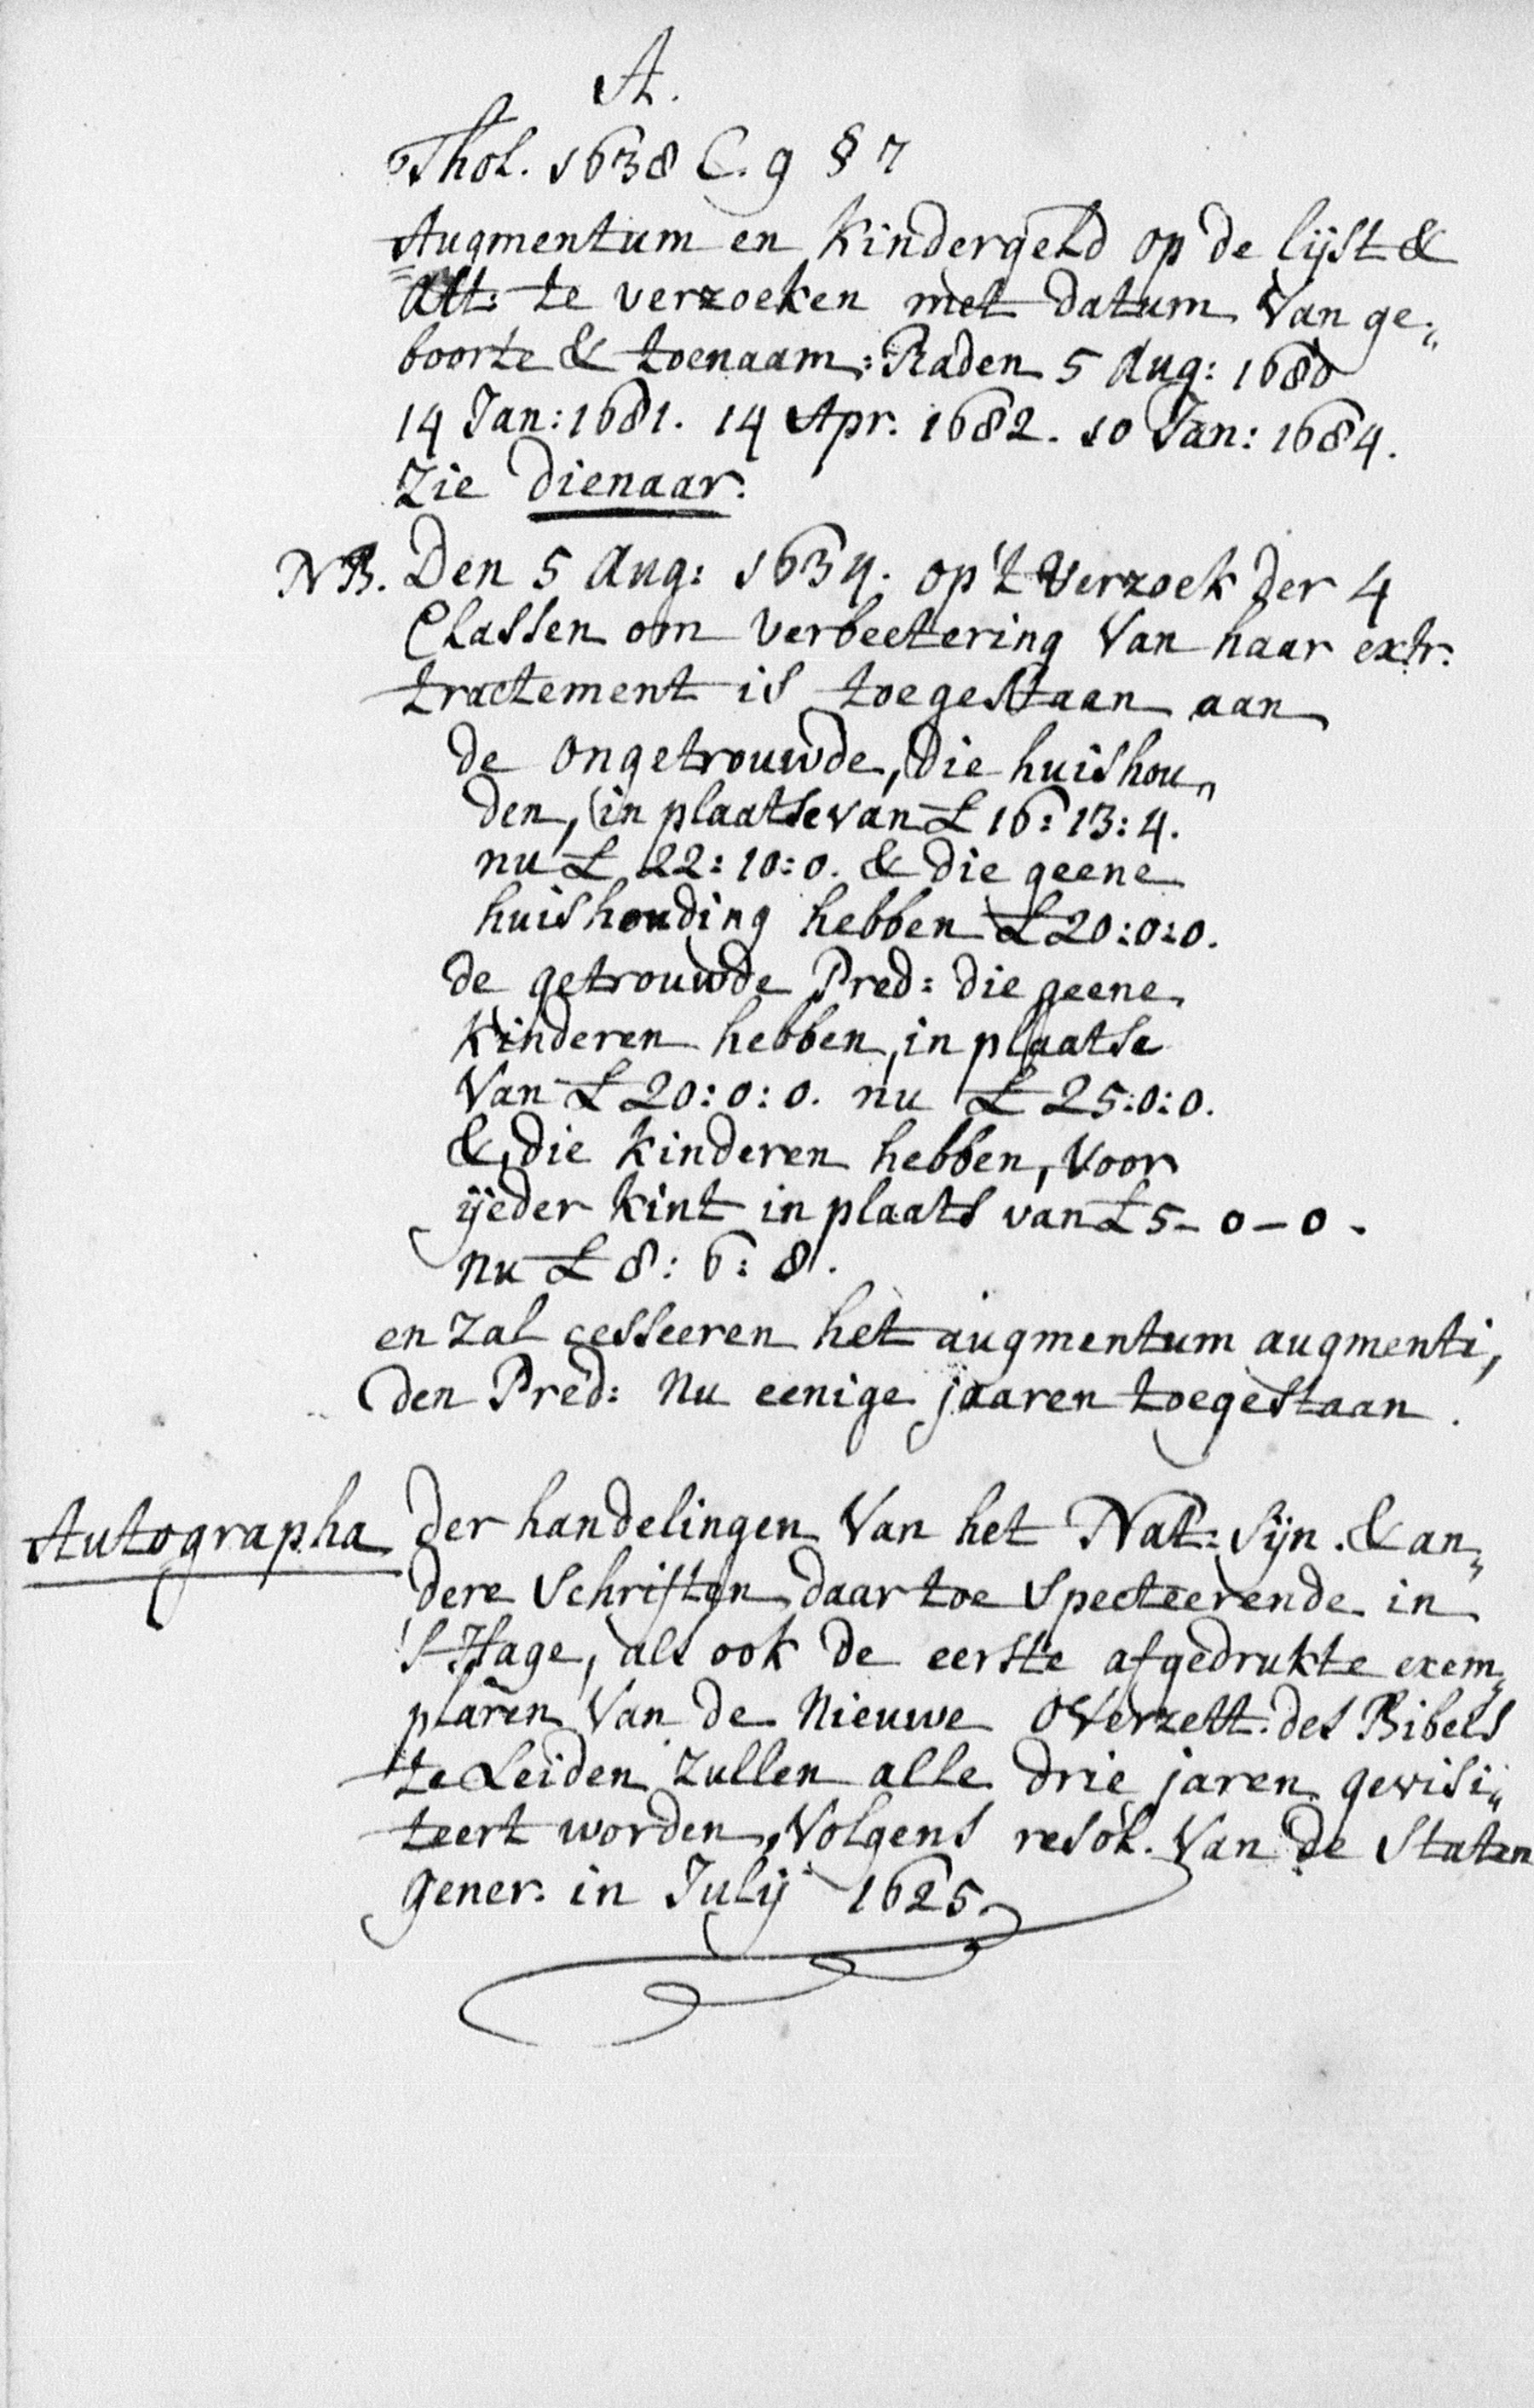 A.
Thol. 1638 C. 9 § 7
Augmentum en Kindergeld op de lijst &
Att: te verzoeken met datum van ge„
boorte & toenaam: Raden 5 Aug: 1680
14 Jan: 1681. 14 Apr. 1682. 10 Jan: 1684.
Zie Dienaar.
NB. Den 5 Aug: 1634. op 't verzoek der 4
Classen om verbeetering van haar extr.
tractement is toegestaan aan
de ongetrouwde, die huishou„
den, in plaatse van £ 16: 13: 4.
nu £ 22: 10: 0. & die geene
huishouding hebben £ 20: 0: 0.
de getrouwde Pred: die geene
Kinderen hebben, in plaatse
van £ 20: 0: 0. nu £ 25: 0: 0.
& die kinderen hebben, voor
ijeder kint in plaats van £ 5 - 0 - 0 -
nu £ 8: 6: 8.
en zal cesseeren het augmentum augmenti,
den Pred: nu eenige jaaren toegestaan.
Autographa der handelingen van het Nat: Sijn. & an„
dere Schriften daar toe specteerende in
'S Hage, als ook de eerste afgedrukte exem„
plaren van de Nieuwe overzett. des Bibels
te Leiden zullen alle drie jaren gevisi„
teert worden, volgens resol. van de Staten
Gener. in Julij 1625.